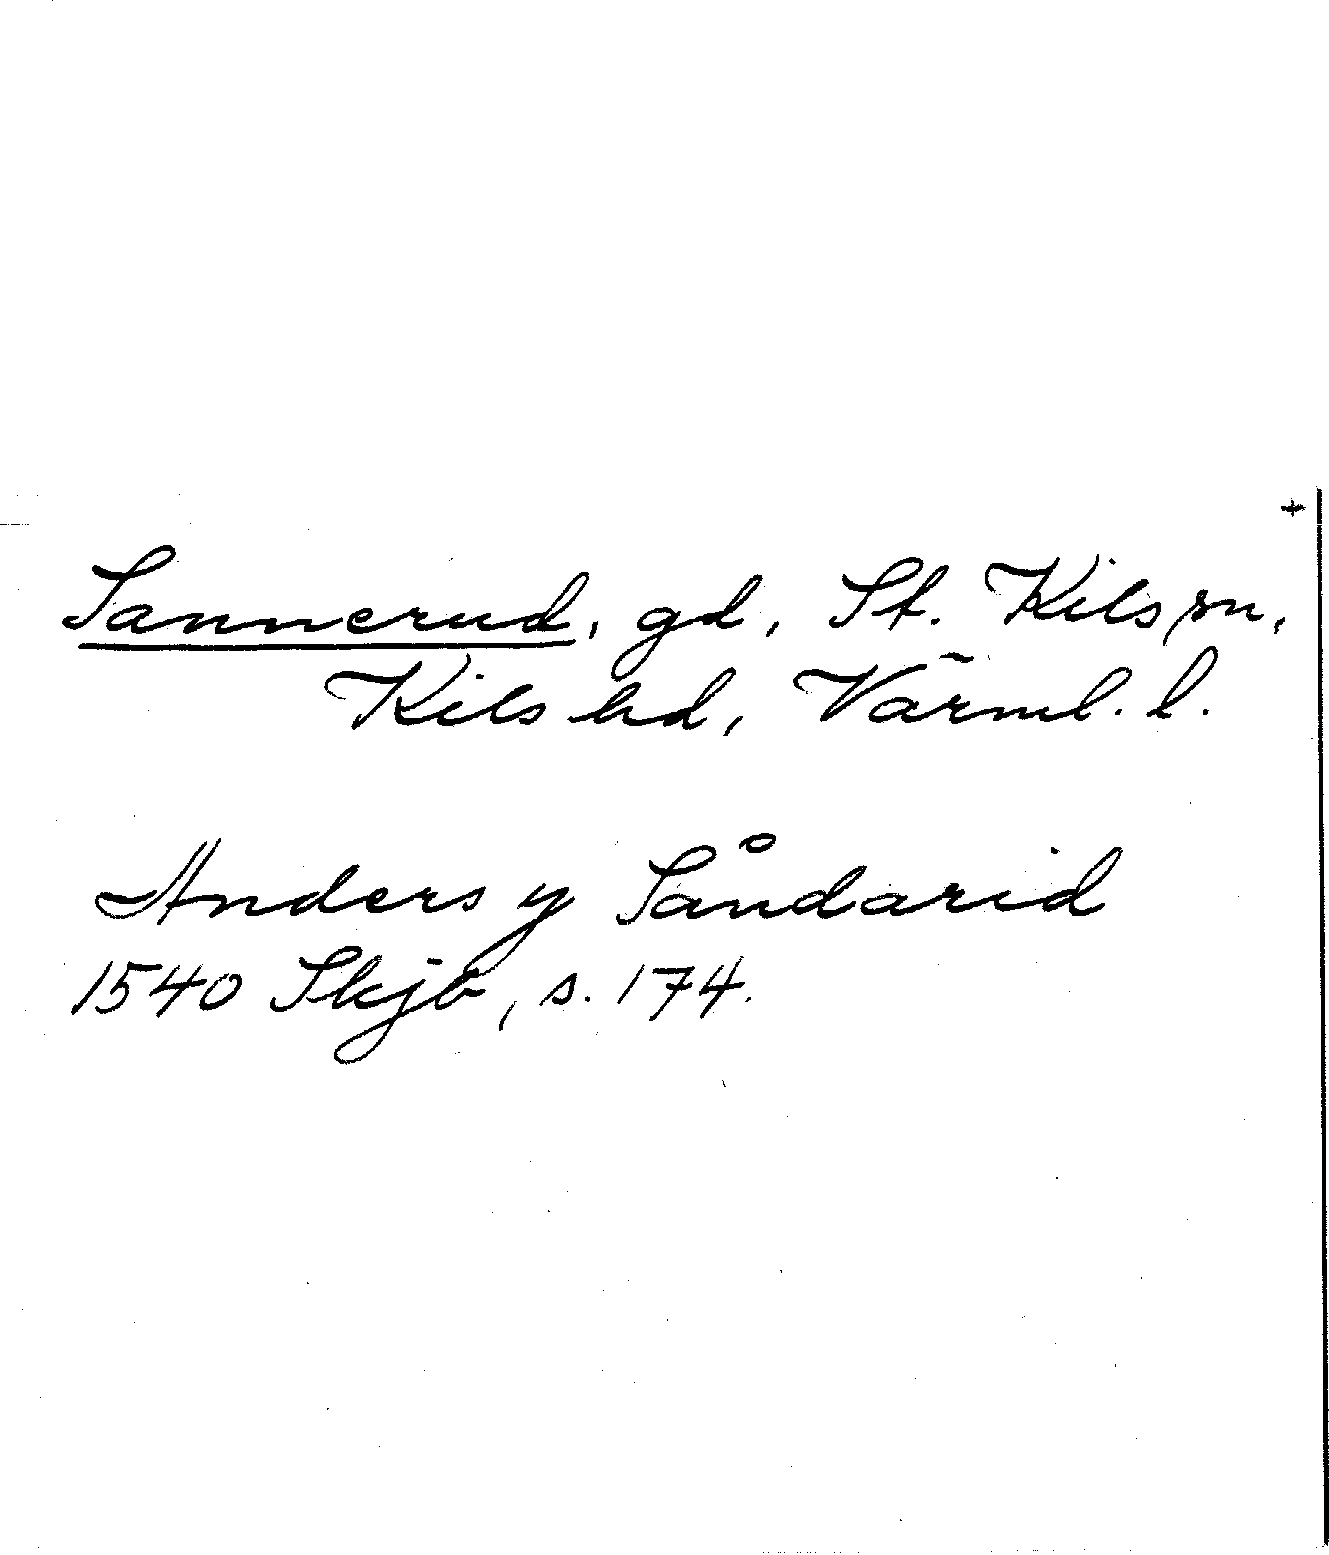 Sannerud, gd, St. Kils sn,
Kils hd, Värml. l.
Anders y Såndarid
1540 Skjb, s. 174.